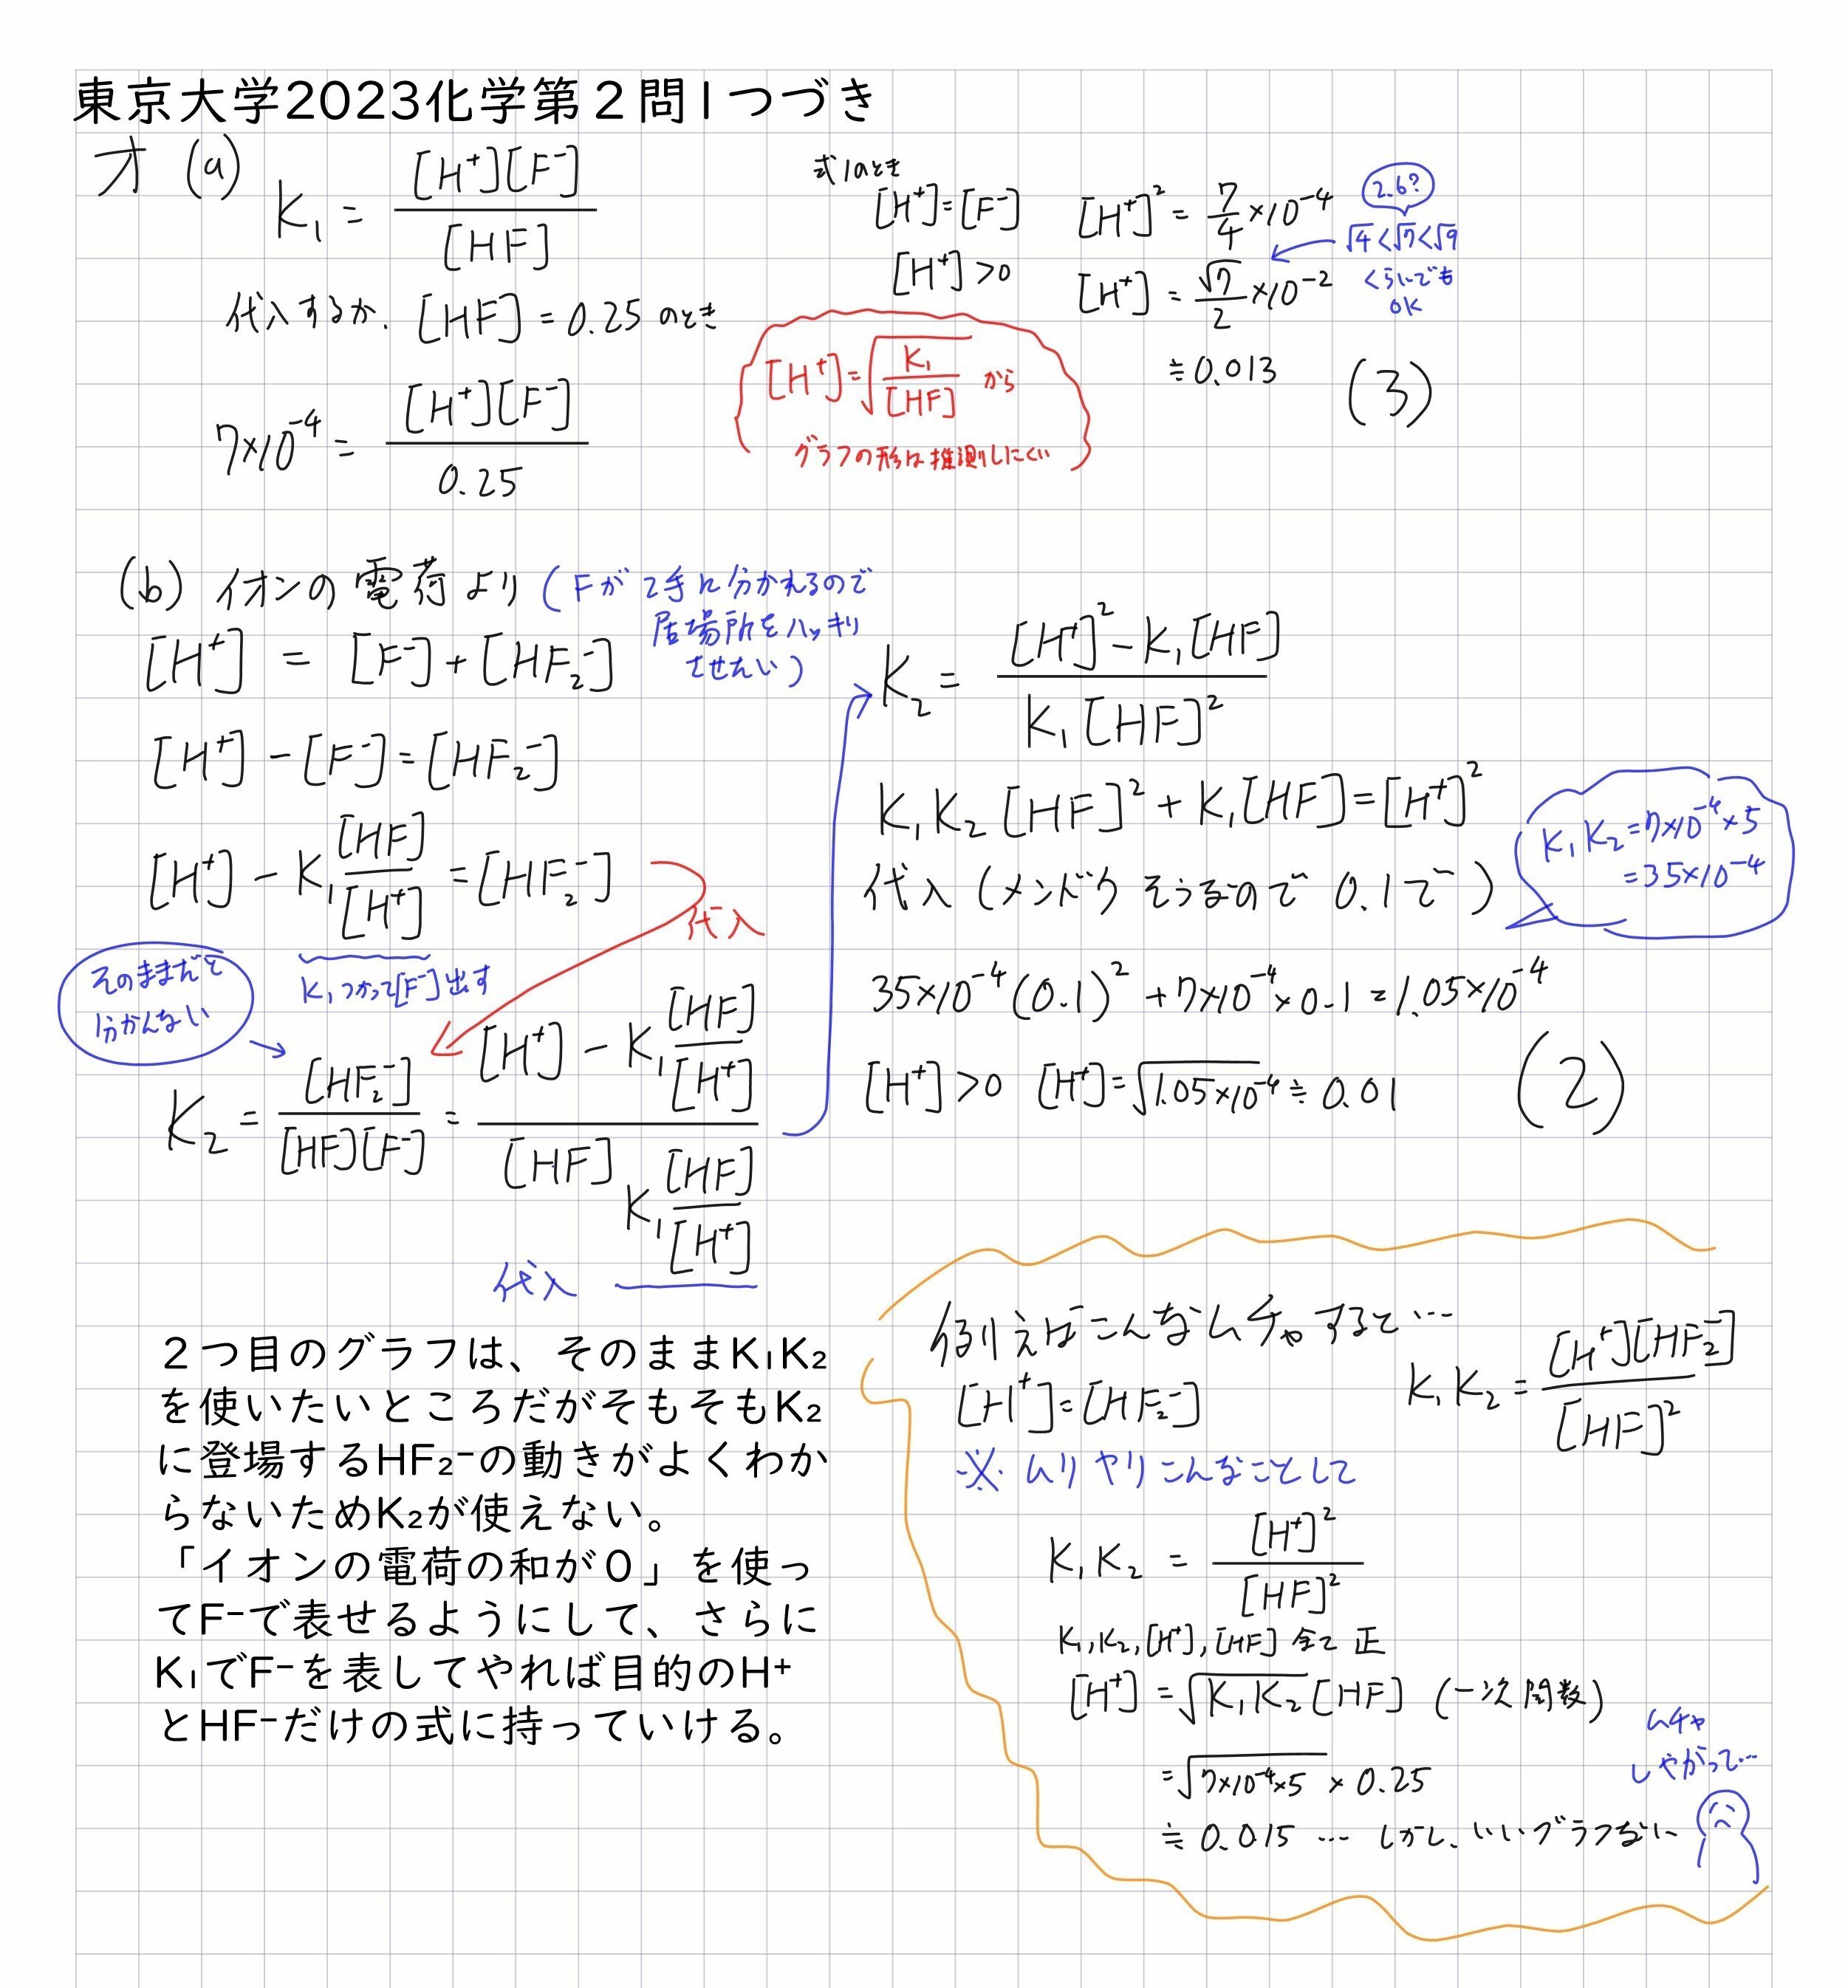 東京大学2023化学第2問1つづき
オ (a) K₁ = [H⁺][F⁻] / [HF]
代入するか. [HF] = 0.25 のとき
7×10⁻⁴ = [H⁺][F⁻] / 0.25
式1のとき
[H⁺]=[F⁻]
[H⁺]>0
[H⁺]=√(K₁/[HF]) から
グラフの形は推測しにくい
[H⁺]² = 7/4 ×10⁻⁴
[H⁺] = √7/2 ×10⁻²
≒ 0.013 (3)
2.6?
√4<√7<√9
くらいでも
OK
(b) イオンの電荷より (Fが2手に分かれるので
居場所をハッキリ
させたい)
[H⁺] = [F⁻]+[HF₂⁻]
[H⁺]-[F⁻]=[HF₂⁻]
[H⁺] - K₁[HF]/[H⁺] = [HF₂⁻]
代入
K₁つかって[F⁻]出す
そのままだと
分かんない
K₂ = [HF₂⁻] / [HF][F⁻] = ([H⁺] - K₁[HF]/[H⁺]) / ([HF] K₁[HF]/[H⁺])
代入
K₂ = ([H⁺]²-K₁[HF]) / K₁[HF]²
K₁K₂[HF]²+K₁[HF]=[H⁺]²
代入 (メンドクそうなので 0.1で)
K₁K₂=7×10⁻⁴×5
=35×10⁻⁴
35×10⁻⁴(0.1)²+7×10⁻⁴×0.1=1.05×10⁻⁴
[H⁺]>0 [H⁺]=√(1.05×10⁻⁴)≒0.01 (2)
2つ目のグラフは、そのままK₁K₂
を使いたいところだがそもそもK₂
に登場するHF₂⁻の動きがよくわか
らないためK₂が使えない。
「イオンの電荷の和が0」を使っ
てF⁻で表せるようにして、さらに
K₁でF⁻を表してやれば目的のH⁺
とHF⁻だけの式に持っていける。
例えばこんなムチャすると…
[H⁺]=[HF₂⁻]
K₁K₂ = [H⁺][HF₂⁻] / [HF]²
※ムリヤリこんなことして
K₁K₂ = [H⁺]² / [HF]²
K₁,K₂,[H⁺],[HF] 全て正
[H⁺] = √(K₁K₂)[HF] (一次関数)
=√(7×10⁻⁴×5) × 0.25
≒ 0.015 … しかし、いいグラフない
ムチャ
しやがって…